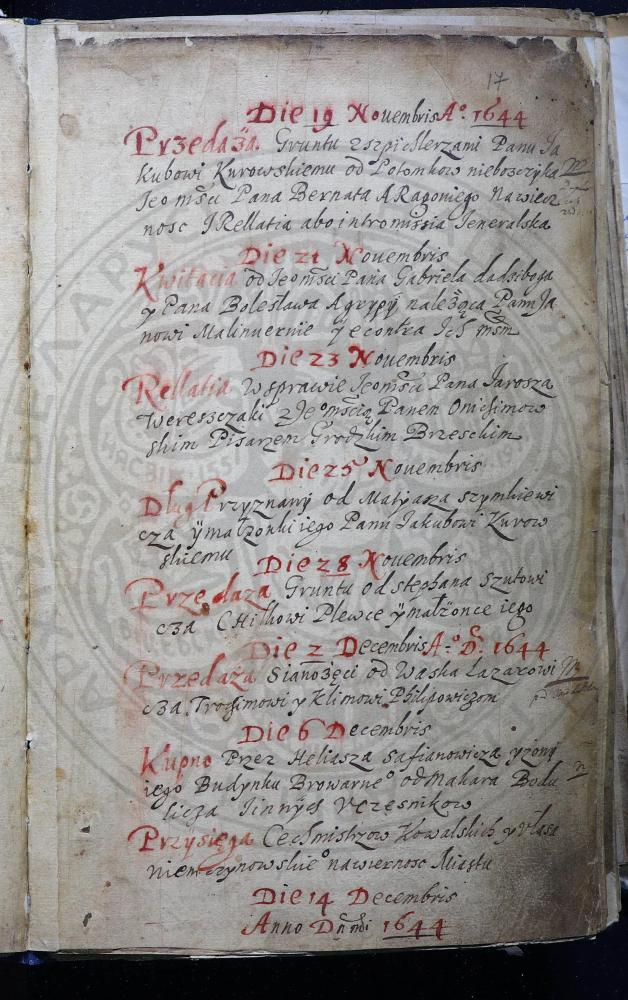 17
Die 19 Nouembris Aº. 1644
Przedaża. Gruntu z szpichlerzami Panu Ja
kubowi Kurowskiemu od Potomkow nieboszczyka
Jeo mści Pana Bernata A Ragoniego Na wiecz
nosc J Rellatia abo intromissia Jeneralska
Die 21 Nouembris
Kwitacia od Jeomści Pana Gabriela dadziboga
y Pana Bolesława Agryppy należąca Panu Ja
nowi Malinuernie y econtra
Die 23 Nouembris
Rellatia W sprawie Jeomści Pana Jarosza
Wereszczaki z Jeomścią Panen Onichimow
skim Pisarzem Grodzkim Brzeskim
Die 25 Nouembris
Dług Przyznany od Matyasza szymkiewi
cza y małzonki iego Panu Jakubowi Kurow
skiemu
Die 28 Nouembris
Przedaza Gruntu od stephana szutowi
cza Chilkowi Plewce y małżonce iego
Die 2 Decembris A.º D. 1644
Przedaża Sianożęci od Waska Lazarowi
cza Trochimowi y Klimowi Philipowiczom
Die 6 Decembris
Kupno Przez Heliasza Safianowicza y żony
iego Budynku Browarneº od Makara Bodu
licza Jinnych Vczesnikow
Przysięga Cechmistrzow Kowalskich y Vlasa
niemczynowskieº na wiernosc Miastu
Die 14 Decembris
Anno Dn̄i 1644